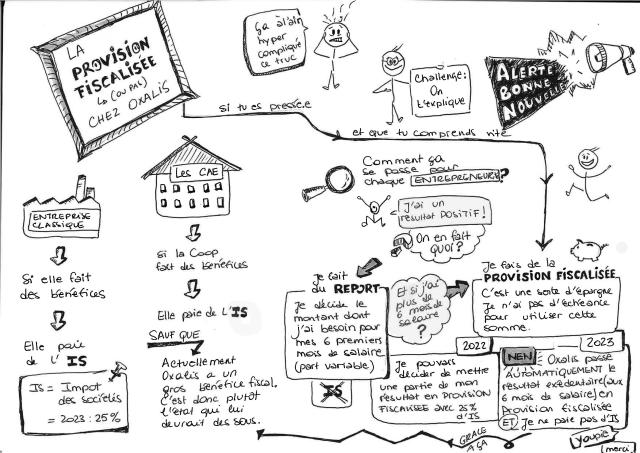 LA
PROVISION
FISCALISÉE
(OU PAS)
CHEZ OXALIS
ça a l'air
hyper
compliqué
ce truc
Challenge:
On
L'explique
ALERTE
BONNE
NOUVELLE
si tu es pressé.e
et que tu comprends vite
ENTREPRISE
CLASSIQUE
Si elle fait
des bénéfices
Elle paie
de l'IS
IS = Impot
des sociétés
= 2023 : 25%
Les CAE
si la Coop
fait des bénéfices
Elle paie de l'IS
SAUF QUE
Actuellement
Oxalis a un
gros bénéfice fiscal.
C'est donc plutôt
l'état qui lui
devrait des sous.
Comment ça
se passe pour
chaque ENTREPRENEUR.E?
J'ai un
résultat POSITIF!
On en fait
QUOI?
Je fait
du REPORT
Je décide le
montant dont
j'ai besoin pour
mes 6 premiers
mois de salaire
(part variable)
IS
Et si j'ai
plus de
6 mois de
salaire
?
Je fais de la
PROVISION FISCALISÉE
C'est une sorte d'épargne
Je n'ai pas d'échéance
pour utiliser cette
somme.
2022
Je pouvais
décider de mettre
une partie de mon
résultat en PROVISION
FISCALISÉE avec 25%
d'IS
2023
NEW Oxalis passe
AUTOMATIQUEMENT le
résultat exédentaire (aux
6 mois de salaire) en
Provision fiscalisée
ET Je ne paie pas d'IS
GRACE
A ÇA
Youpie
merci